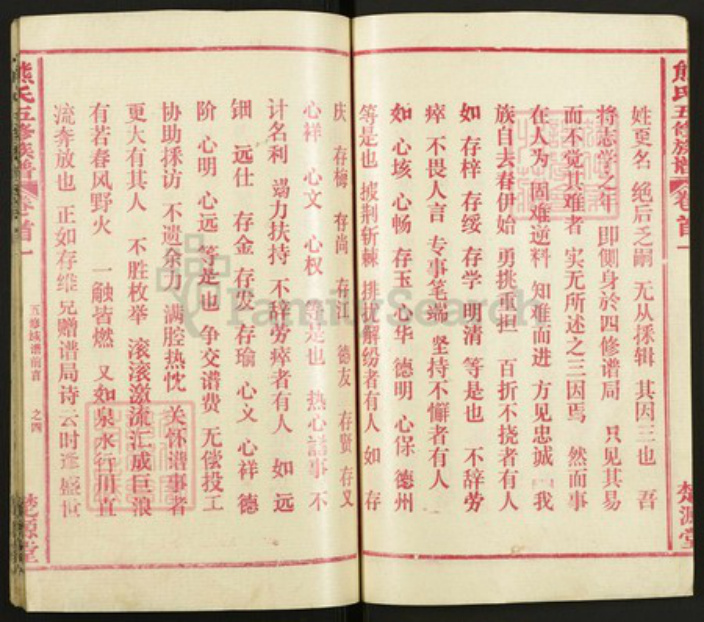 熊氏五修族谱 卷首一
楚源堂
姓更名 绝后乏嗣 无从採辑 其因三也 吾
将志学之年 即侧身於四修谱局 只见其易
而不觉其难者 实无所述之三因焉 然而事
在人为 固难逆料 知难而进 方见忠诚 我
族自去春伊始 勇挑重担 百折不挠者有人
如 存梓 存绥 存学 明清 等是也 不辞劳
瘁 不畏人言 专事笔端 坚持不懈者有人
如 心垓 心畅 存玉 心华 德明 心保 德州
等是也 披荆斩棘 排忧解纷者有人 如 存
庆 存梅 存尚 存江 德友 存贤 存义
心祥 心文 心权 等是也 热心喆事 不
计名利 竭力扶持 不辞劳瘁者有人 如 远
钿 远仕 存金 存发 存瑜 心义 心祥 德
阶 心明 心远 等是也 争交谱费 无偿投工
协助採访 不遗余力 满腔热忱 关怀谱事者
更大有其人 不胜枚举 滚滚激流汇成巨浪
有若春风野火 一触皆燃 又如泉水行川直
流奔放也 正如存维兄赠谱局诗云时逢盛世
熊氏五修族谱 卷首一
五修族谱前言 之四
楚源堂
FamilySearch